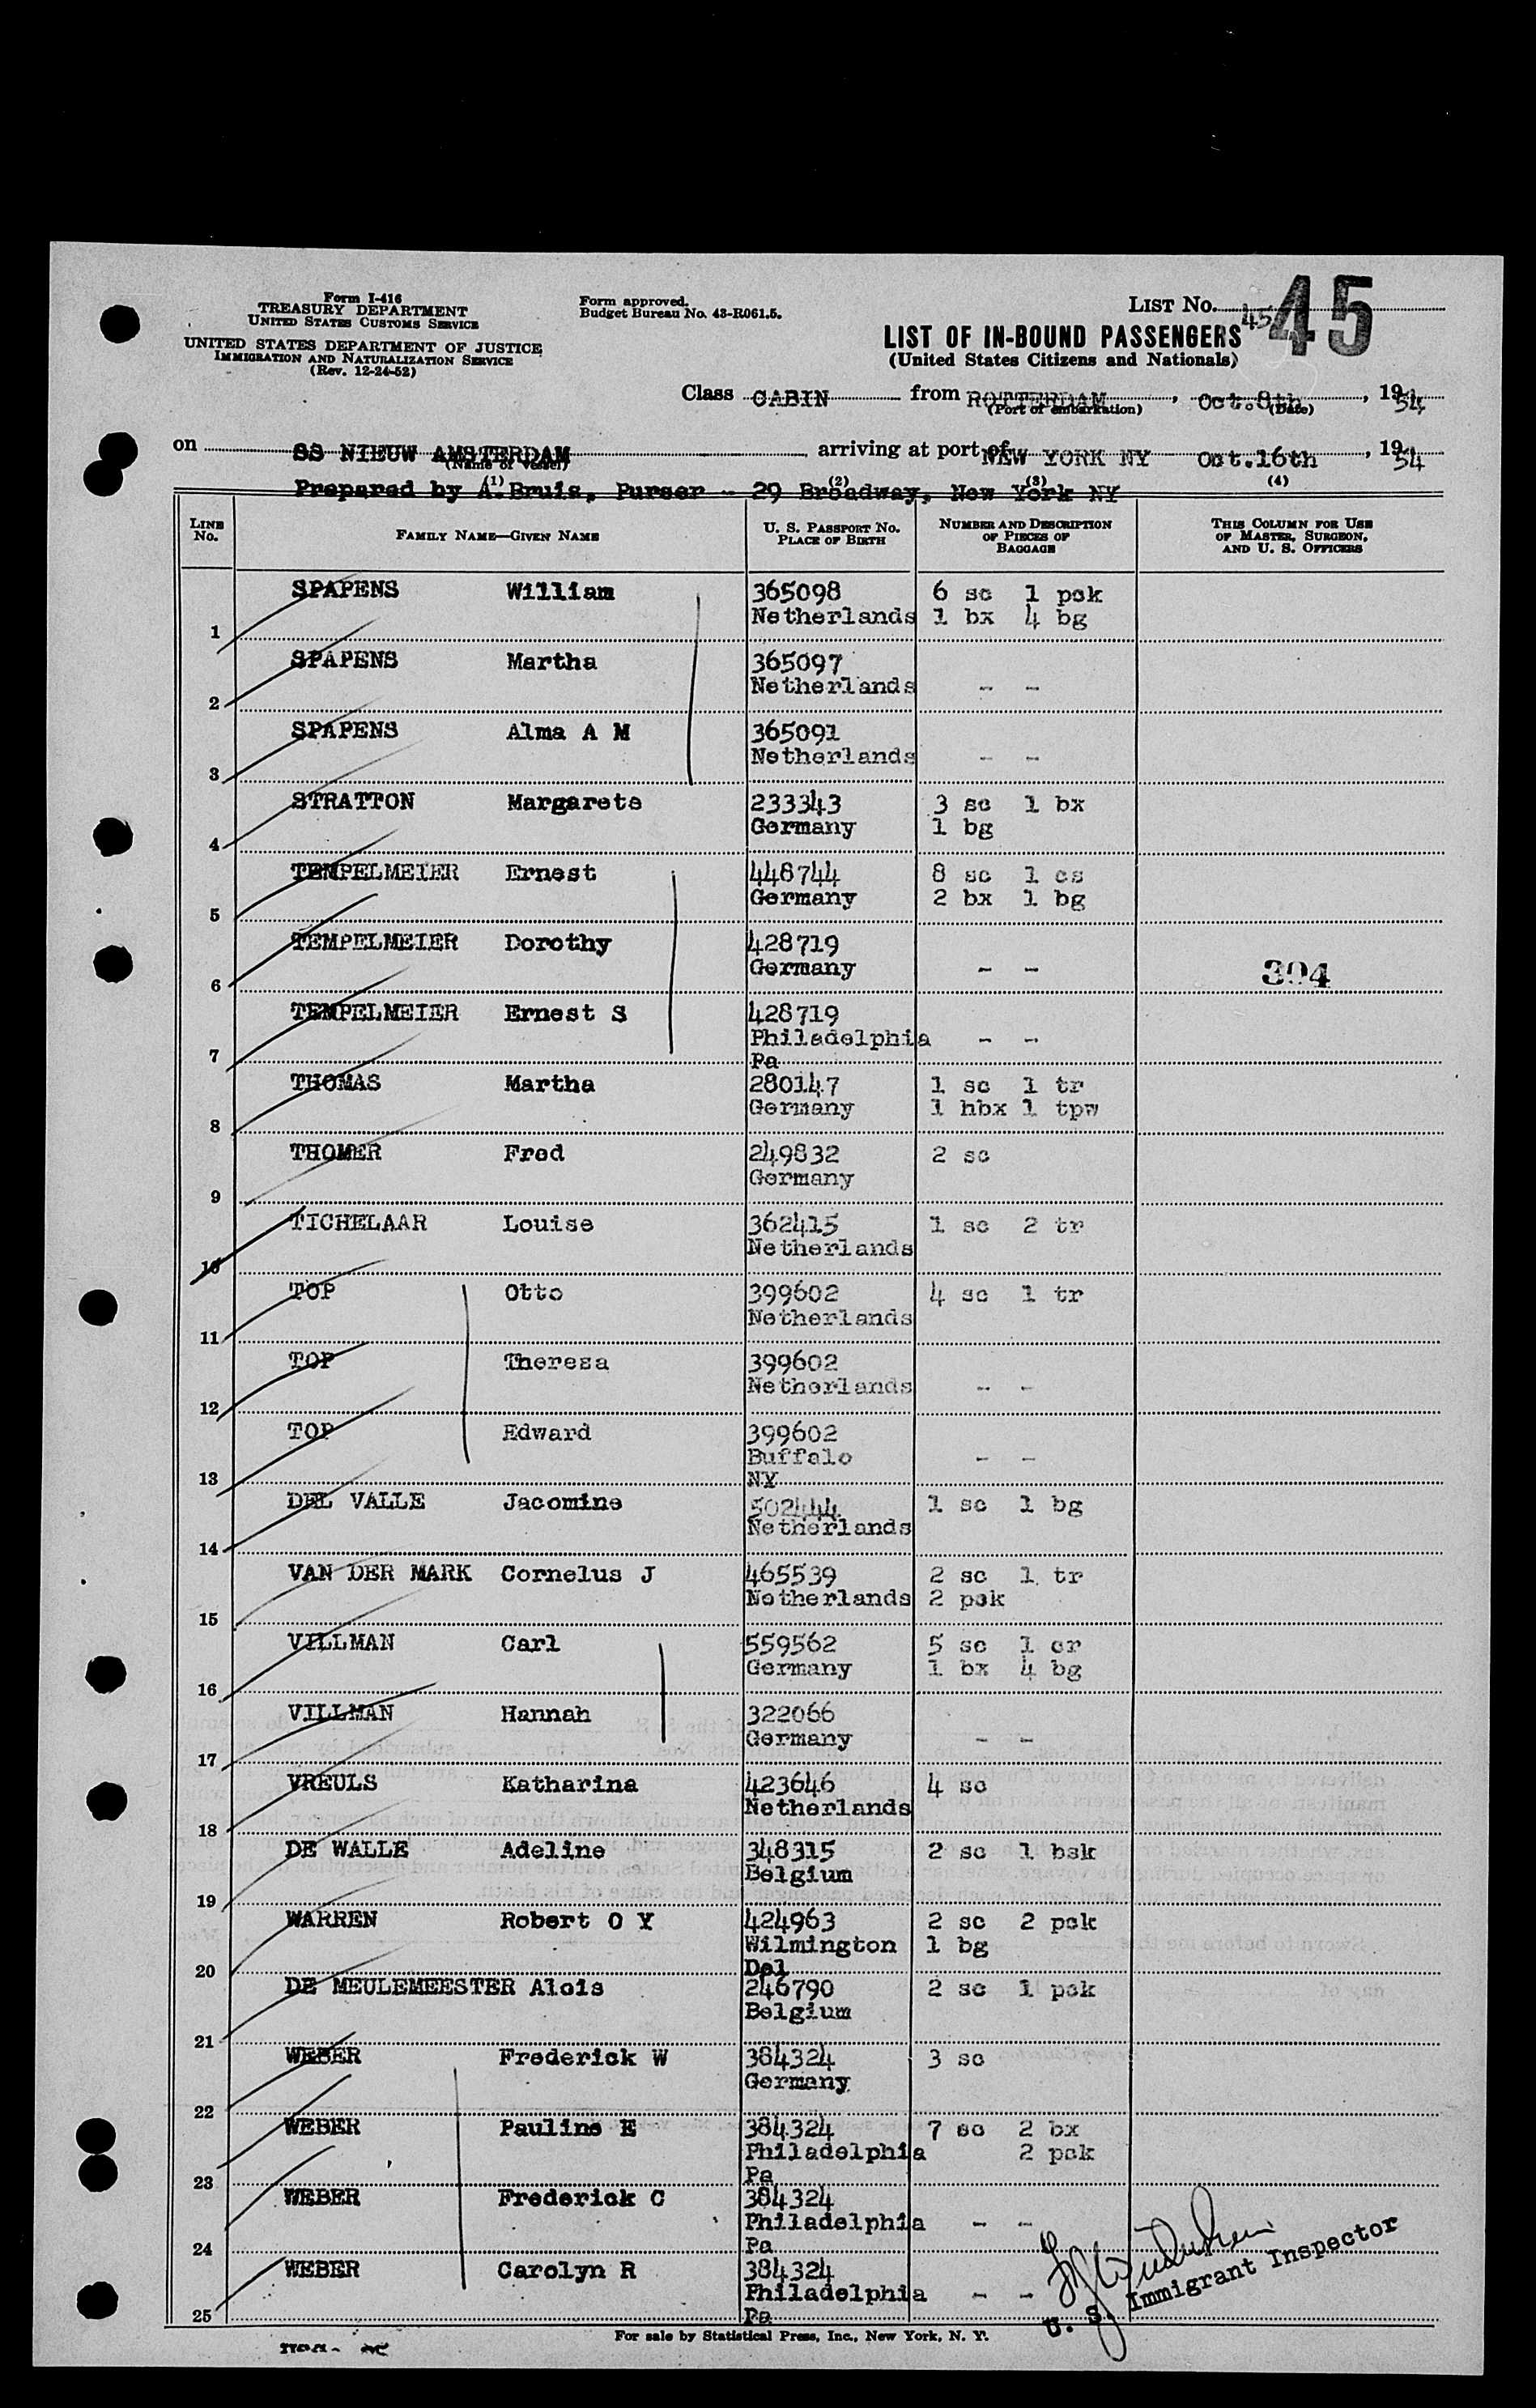 Form I-416
TREASURY DEPARTMENT
UNITED STATES CUSTOMS SERVICE
UNITED STATES DEPARTMENT OF JUSTICE
IMMIGRATION AND NATURALIZATION SERVICE
(Rev. 12-24-52)
Form approved.
Budget Bureau No. 43-R061.5.
LIST No. 45 45
LIST OF IN-BOUND PASSENGERS
(United States Citizens and Nationals)
Class CABIN from ROTTERDAM, Oct.8th, 1954
(Port of embarkation) (Date)
on SS NIEUW AMSTERDAM arriving at port of NEW YORK NY Oct.16th, 1954
(Name of vessel)
Prepared by A.Bruis, Purser - 29 Broadway, New York NY
(1) (2) (3) (4)
LINE No. FAMILY NAME—GIVEN NAME U. S. PASSPORT No. PLACE OF BIRTH NUMBER AND DESCRIPTION OF PIECES OF BAGGAGE THIS COLUMN FOR USE OF MASTER, SURGEON, AND U. S. OFFICERS
SPAPENS William 365098 6 sc 1 pck
1 Netherlands 1 bx 4 bg
SPAPENS Martha 365097
2 Netherlands - -
SPAPENS Alma A M 365091
3 Netherlands - -
STRATTON Margarete 233343 3 sc 1 bx
4 Germany 1 bg
TEMPELMEIER Ernest 448744 8 sc 1 cs
5 Germany 2 bx 1 bg
TEMPELMEIER Dorothy 428719
6 Germany - - 304
TEMPELMEIER Ernest S 428719
7 Philadelphia - -
Pa
THOMAS Martha 280147 1 sc 1 tr
8 Germany 1 hbx 1 tpw
THOMER Fred 249832 2 sc
9 Germany
TICHELAAR Louise 362415 1 sc 2 tr
10 Netherlands
TOP Otto 399602 4 sc 1 tr
11 Netherlands
TOP Theresa 399602
12 Netherlands - -
TOP Edward 399602
13 Buffalo - -
NY
DEL VALLE Jacomine 502444 1 sc 1 bg
14 Netherlands
VAN DER MARK Cornelus J 465539 2 sc 1 tr
15 Netherlands 2 pck
VILLMAN Carl 559562 5 sc 1 cr
16 Germany 1 bx 4 bg
VILLMAN Hannah 322066
17 Germany - -
VREULS Katharina 423646 4 sc
18 Netherlands
DE WALLE Adeline 348315 2 sc 1 bsk
19 Belgium
WARREN Robert O Y 424963 2 sc 2 pck
20 Wilmington 1 bg
Del
DE MEULEMEESTER Alois 246790 2 sc 1 pck
21 Belgium
WEBER Frederick W 384324 3 sc
22 Germany
WEBER Pauline E 384324 7 sc 2 bx
23 Philadelphia 2 pck
Pa
WEBER Frederick C 384324
24 Philadelphia - -
Pa
WEBER Carolyn R 384324
25 Philadelphia - -
Pa
U. S. Immigrant Inspector
For sale by Statistical Press, Inc., New York, N. Y.